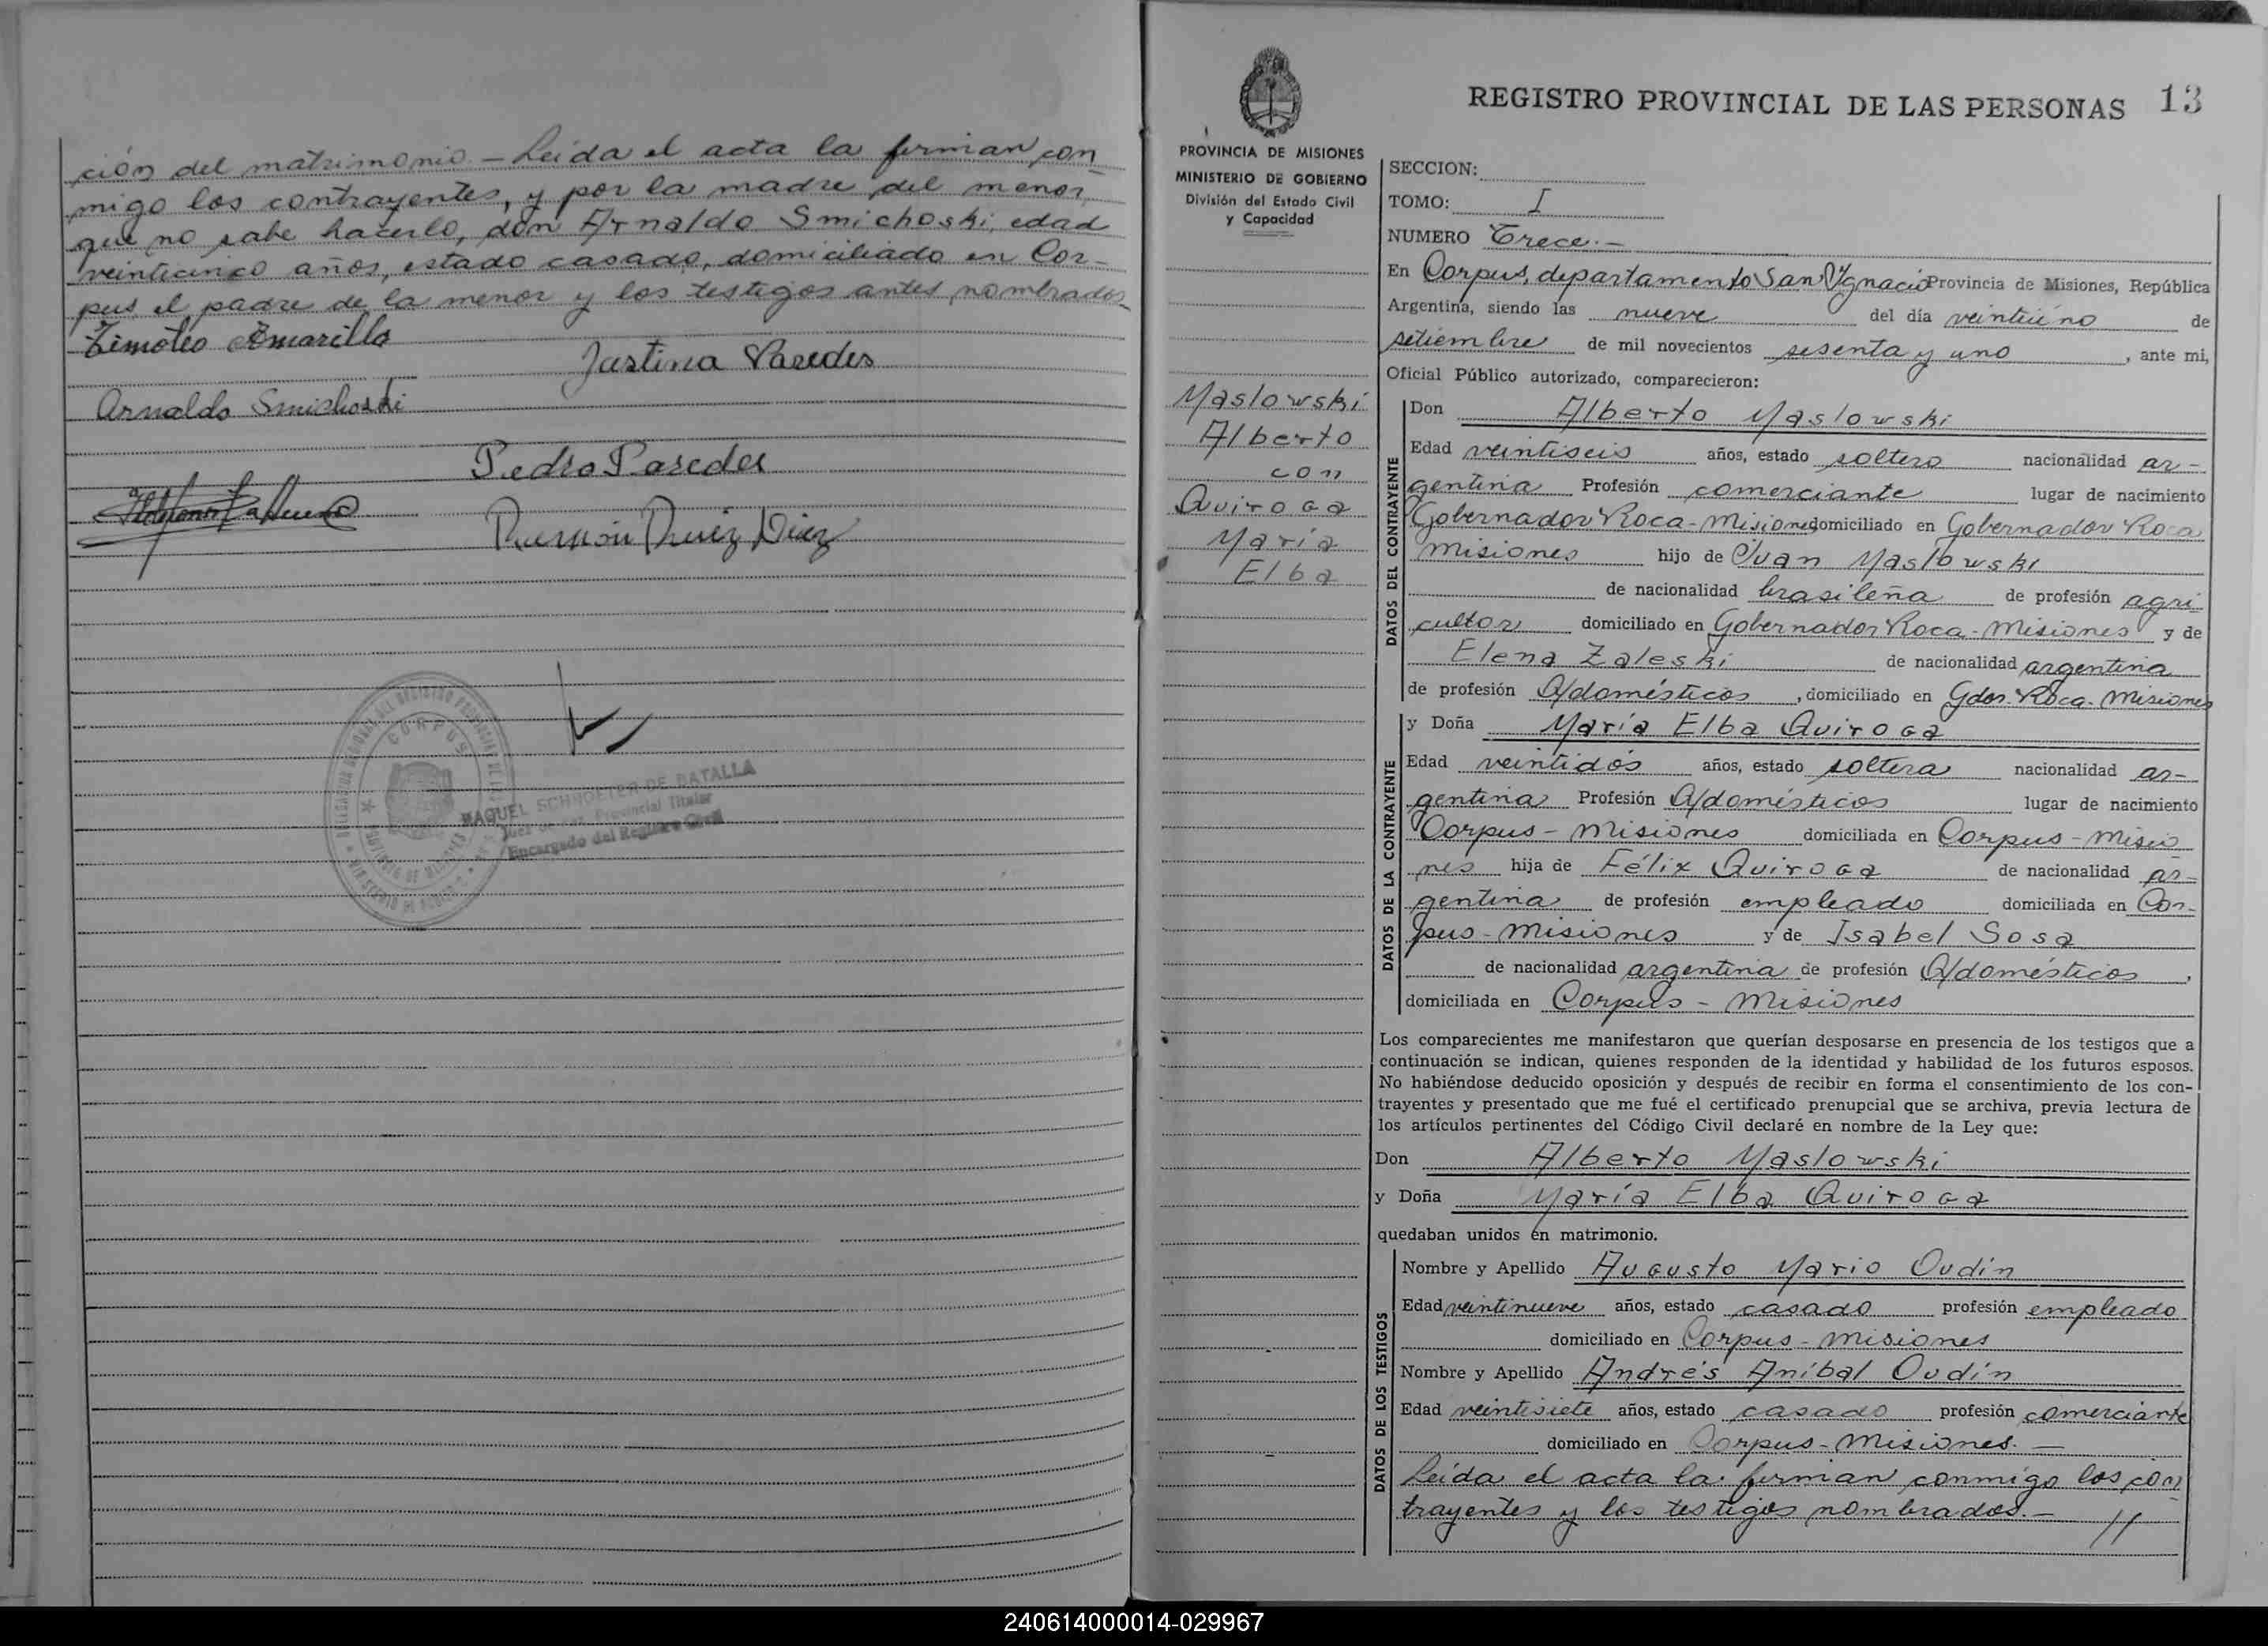 ción del matrimonio.- Leída el acta la firman con
migo los contrayentes, y por la madre del menor,
que no sabe hacerlo, don Arnaldo Smichoski, edad
veinticinco años, estado casado, domiciliado en Cor-
pus, el padre de la menor y los testigos antes nombrados.-
Timoteo Amarilla
Justina Paredes
Arnaldo Smichoski
Pedro Paredes
Ramón Ruiz Diaz
CORPUS
RAQUEL SCHROETER DE BATALLA
Juez de Paz Provincial Titular
Encargado del Registro Civil
REGISTRO PROVINCIAL DE LAS PERSONAS 13
PROVINCIA DE MISIONES
MINISTERIO DE GOBIERNO
División del Estado Civil
y Capacidad
Maslowski
Alberto
con
Quiroga
María
Elba
SECCION:
TOMO: I
NUMERO Trece.-
En Corpus, departamento San Ygnacio Provincia de Misiones, República
Argentina, siendo las nueve del día veintiuno de
setiembre de mil novecientos sesenta y uno, ante mi,
Oficial Público autorizado, comparecieron:
DATOS DEL CONTRAYENTE
Don Alberto Maslowski
Edad veintiseis años, estado soltero nacionalidad ar-
gentina Profesión comerciante lugar de nacimiento
Gobernador Roca-Misiones domiciliado en Gobernador Roca
Misiones hijo de Juan Maslowski
de nacionalidad brasileña de profesión agri-
cultor domiciliado en Gobernador Roca-Misiones y de
Elena Zaleski de nacionalidad argentina
de profesión Q/domésticos, domiciliado en Gdor. Roca-Misiones
DATOS DE LA CONTRAYENTE
y Doña María Elba Quiroga
Edad veintidós años, estado soltera nacionalidad ar-
gentina Profesión Q/domésticos lugar de nacimiento
Corpus-Misiones domiciliada en Corpus-Misio
nes hija de Félix Quiroga de nacionalidad ar-
gentina de profesión empleado domiciliada en Cor-
pus-Misiones y de Isabel Sosa
de nacionalidad argentina de profesión Q/domésticos,
domiciliada en Corpus-Misiones
Los comparecientes me manifestaron que querían desposarse en presencia de los testigos que a
continuación se indican, quienes responden de la identidad y habilidad de los futuros esposos.
No habiéndose deducido oposición y después de recibir en forma el consentimiento de los con-
trayentes y presentado que me fué el certificado prenupcial que se archiva, previa lectura de
los artículos pertinentes del Código Civil declaré en nombre de la Ley que:
Don Alberto Maslowski
y Doña María Elba Quiroga
quedaban unidos en matrimonio.
DATOS DE LOS TESTIGOS
Nombre y Apellido Augusto Mario Oudín
Edad veintinueve años, estado casado profesión empleado
domiciliado en Corpus-Misiones
Nombre y Apellido Andrés Aníbal Oudín
Edad veintisiete años, estado casado profesión comerciante
domiciliado en Corpus-Misiones.-
Leída el acta la firman conmigo los con
trayentes y los testigos nombrados.- //
240614000014-029967